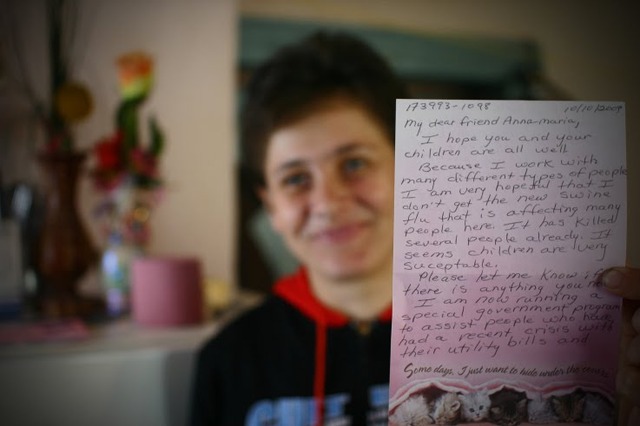 173993-1098 10/10/2009
My dear friend Anna-maria,
I hope you and your
children are all well.
Because I work with
many different types of people
I am very hopeful that I
don't get the new swine
flu that is affecting many
people here. It has killed
several people already. It
seems children are very
suceptable.
Please let me know if
there is anything you
I am now running a
special government program
to assist people who have
had a recent crisis with
their utility bills and
Some days, I just want to hide under the